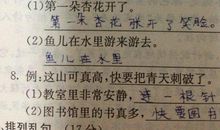 (1)第一朵杏花开了。
第一朵杏花张开了笑脸。
(2)鱼儿在水里游来游去。
鱼儿在水里
8. 例:这山可真高,快要把青天刺破了。
(1)教室里非常安静,连一根针
(2)图书馆里的书真多,快要图书
排列乱句。(17分)